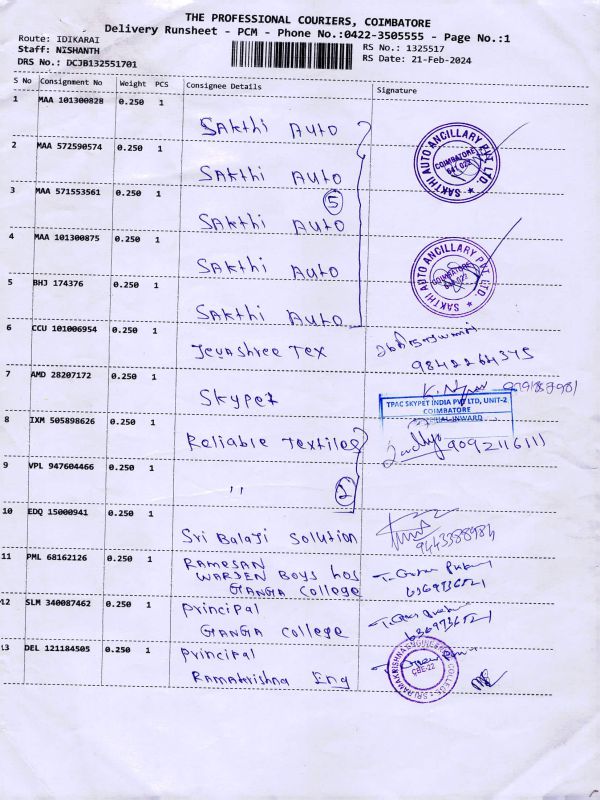 THE PROFESSIONAL COURIERS, COIMBATORE
Delivery Runsheet - PCM - Phone No.:0422-3505555 - Page No.:1
Route: IDIKARAI
RS No.: 1325517
Staff: NISHANTH
RS Date: 21-Feb-2024
DRS No.: DCJB132551701
S No Consignment No Weight PCS Consignee Details Signature
1 MAA 101300828 0.250 1
SAkthi Auto
2 MAA 572590574 0.250 1
SAkthi Auto
3 MAA 571553561 0.250 1
5
SAkthi Auto
4 MAA 101300875 0.250 1
SAkthi Auto
5 BHJ 174376 0.250 1
SAkthi Auto
SAKTHI AUTO ANCILLARY PVT LTD.
COIMBATORE
641 029
SAKTHI AUTO ANCILLARY PVT LTD.
COIMBATORE
6 CCU 101006954 0.250 1
Jeyashree Tex
9842264375
7 AMD 28207172 0.250 1
Skypet
TPAC SKYPET INDIA PVT LTD, UNIT-2
COIMBATORE
INWARD
8 IXM 505898626 0.250 1
Reliable Textiles
9092116111
9 VPL 947604466 0.250 1
,, 2
10 EDQ 15000941 0.250 1
Sri Balaji Solution
9443388984
11 PML 68162126 0.250 1
RAMESAN
WARDEN Boys hos
GANGA College
6369736521
12 SLM 340087462 0.250 1
Principal
GANGA College
6369736521
13 DEL 121184505 0.250 1
Principal
Ramakrishna Eng
SRI RAMAKRISHNA ENGINEERING COLLEGE
CBE-22